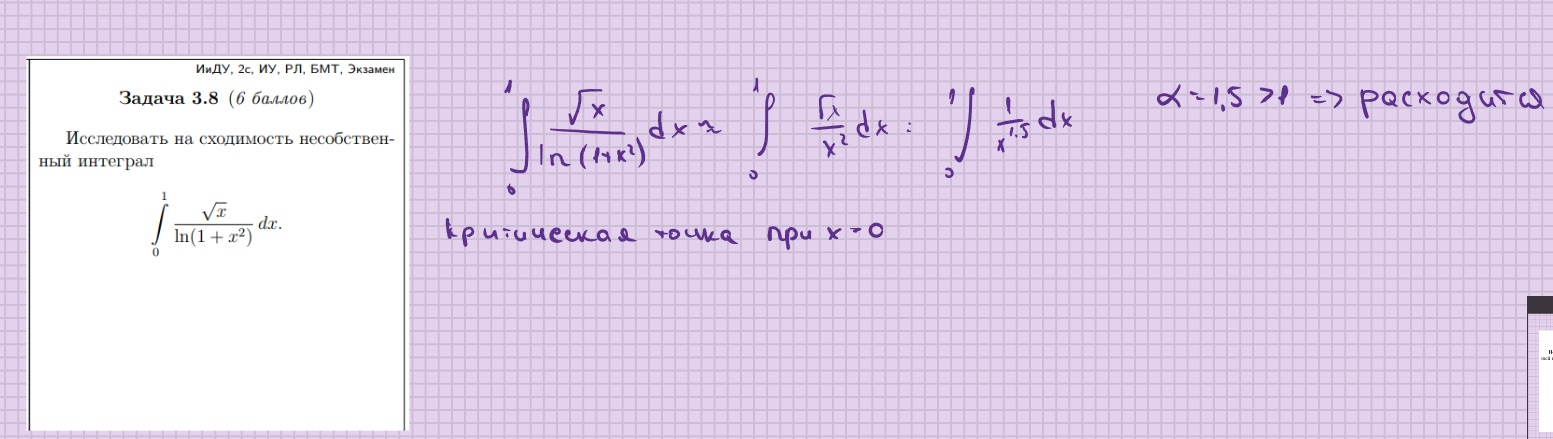 ИиДУ, 2с, ИУ, РЛ, БМТ, Экзамен
Задача 3.8 (6 баллов)
Исследовать на сходимость несобствен-
ный интеграл
∫₀¹ √x / ln(1 + x²) dx.
∫₀¹ √x / ln(1+x²) dx ~ ∫₀¹ √x / x² dx = ∫₀¹ 1 / x^1.5 dx α = 1,5 > 1 => расходится
критическая точка при x = 0